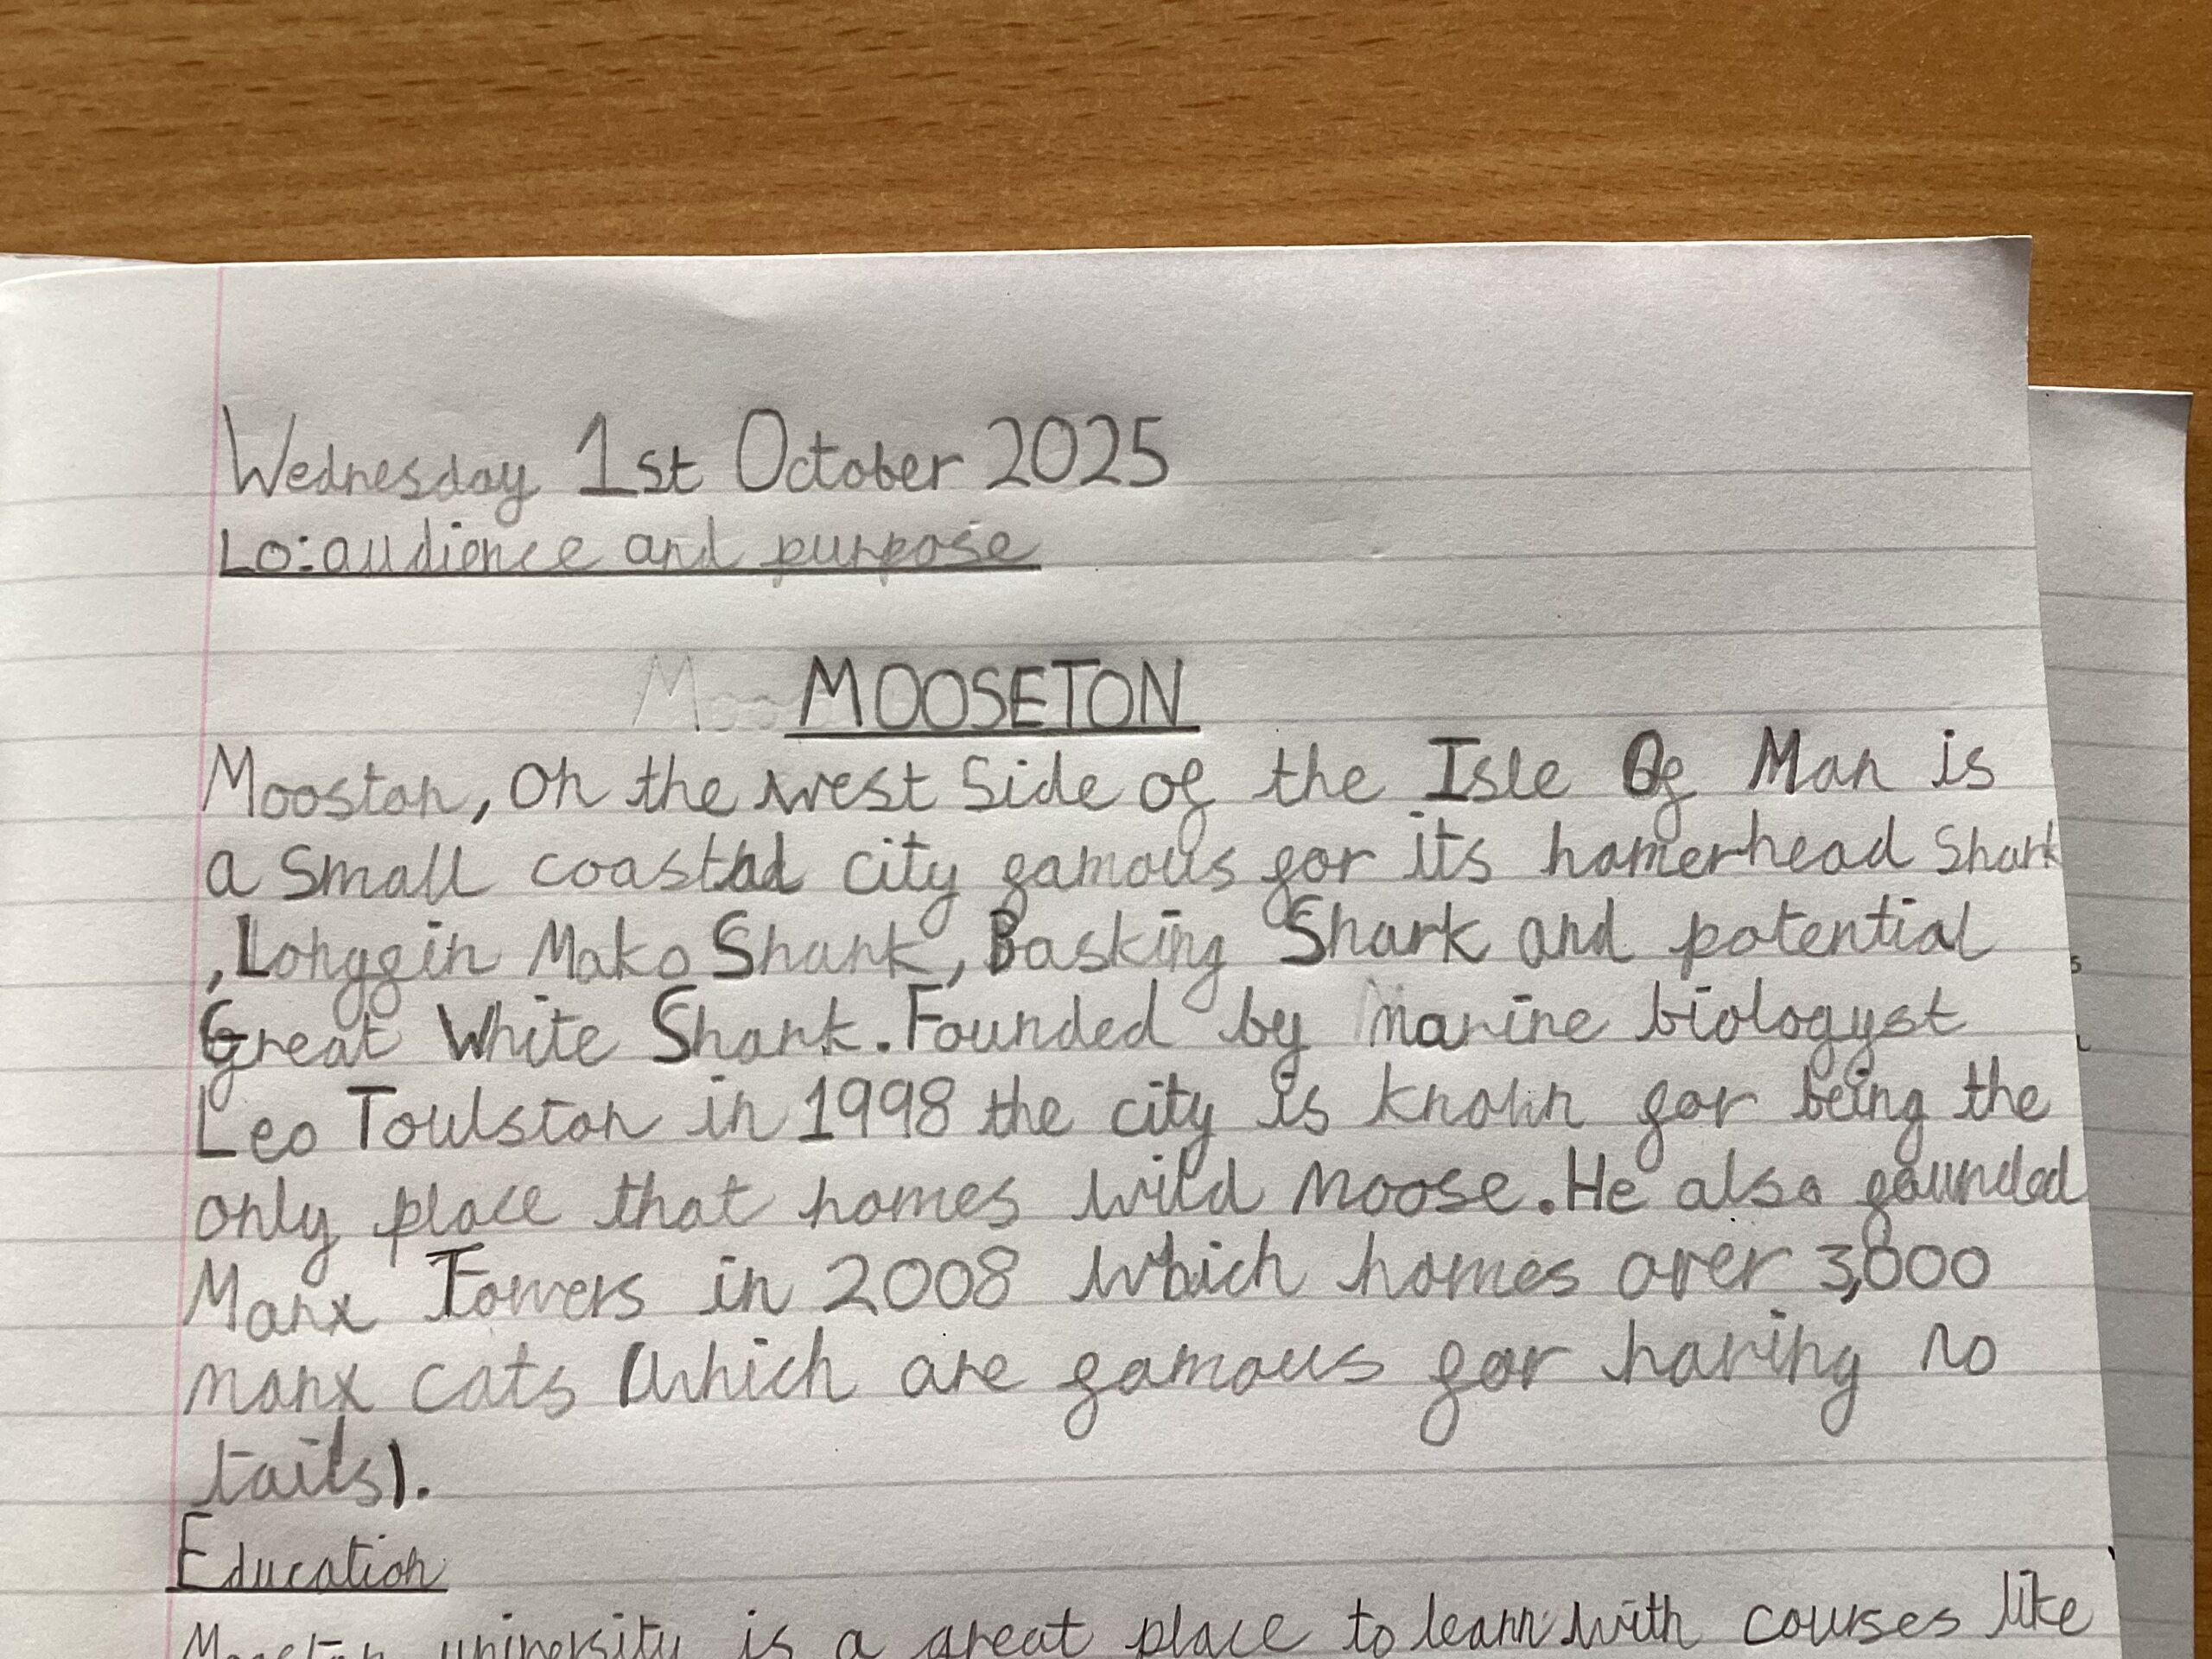 Wednesday 1st October 2025
Lo: audience and purpose
MOOSETON
Mooston, On the west Side of the Isle Of Man is
a Small coastal city famous for its hamerhead Shark
, Longfin Mako Shark, Basking Shark and potential
Great White Shark. Founded by Marine biologyst
Leo Toulston in 1998 the city is known for being the
only place that homes wild Moose. He also founded
Manx Towers in 2008 which homes over 3,000
manx cats (which are famous for having no
tails).
Education
university is a great place to learn with courses like